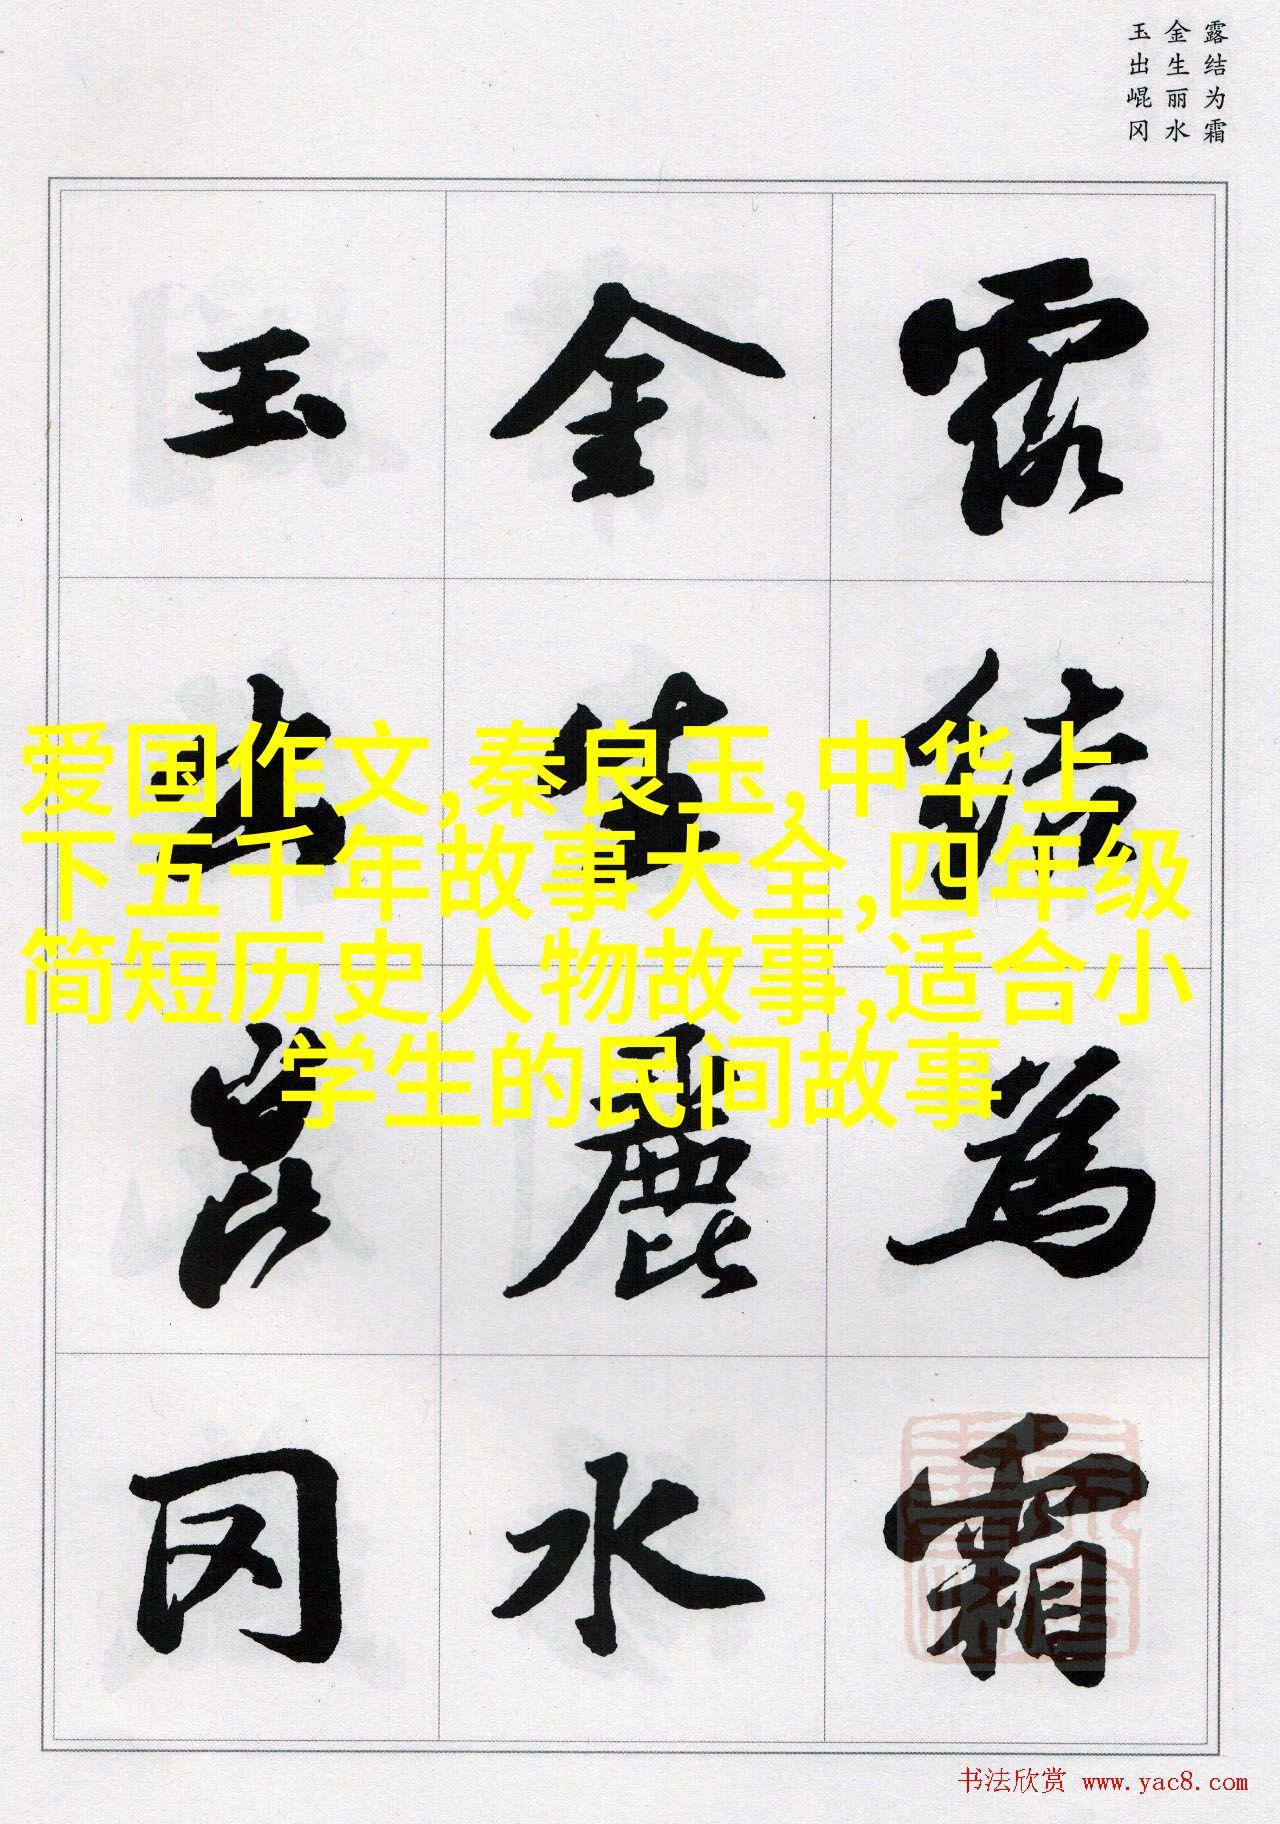 露结为霜
金生丽水
玉出崐冈
露結為霜
金生麗水
玉出崑冈
爱国作文,秦良玉,中华上
下五千年故事大全,四年级
简短历史人物故事,适合小
学生的民间故事
书法欣赏 www.yac8.com